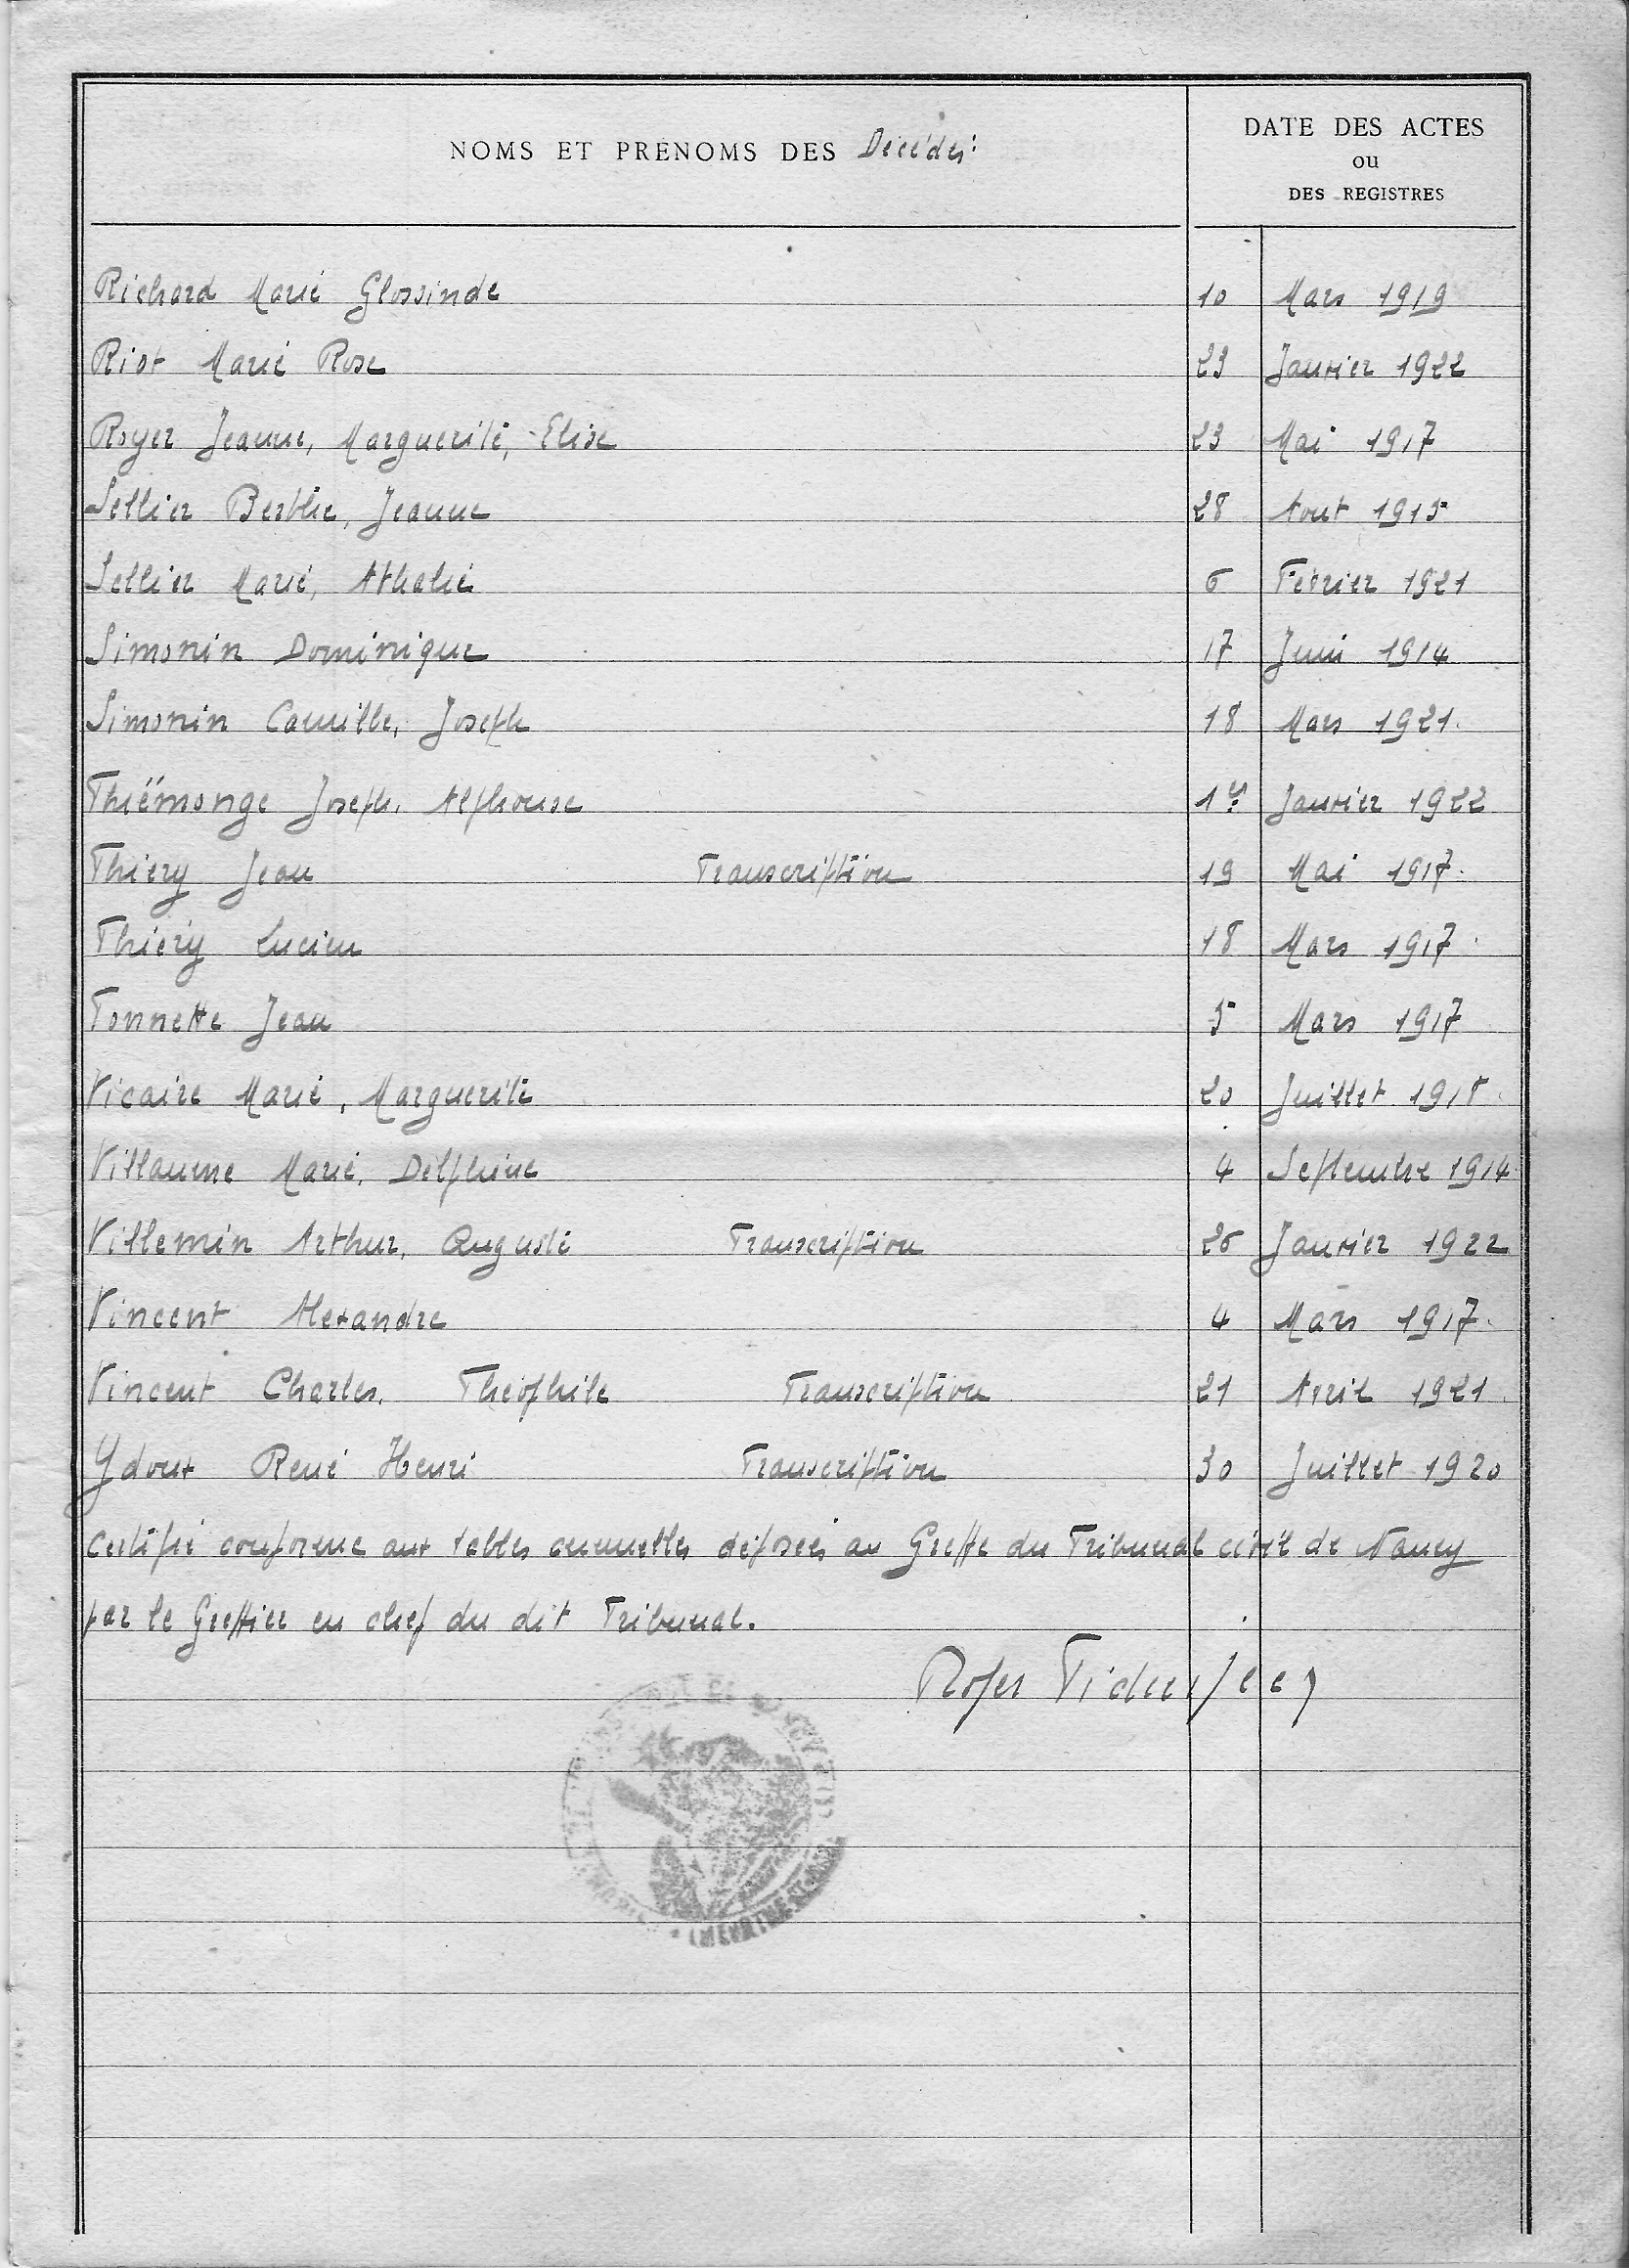 NOMS ET PRÉNOMS DES Décédés
DATE DES ACTES
ou
DES REGISTRES
Richard Marie Glossinde 10 Mars 1919
Riot Marie Rose 23 Janvier 1922
Royer Jeanne, Marguerite, Elise 23 Mai 1917
Sellier Berthe, Jeanne 28 Aout 1915
Sellier Marie, Athalie 6 Février 1921
Simonin Dominique 17 Juin 1914
Simonin Camille, Joseph 18 Mars 1921.
Thiémonge Joseph. Alphonse 1er Janvier 1922
Thiéry Jean Transcription 19 Mai 1917.
Thiéry Lucien 18 Mars 1917.
Tonnette Jean 5 Mars 1917
Vicaire Marie, Marguerite 20 Juillet 1918.
Villaume Marie, Delphine 4 Septembre 1914
Villemin Arthur, Auguste Transcription 26 Janvier 1922
Vincent Alexandre 4 Mars 1917.
Vincent Charles, Théophile Transcription 21 Avril 1921.
Ydoux René Henri Transcription 30 Juillet 1920
Certifié conforme aux tables annuelles déposées au Greffe du Tribunal civil de Nancy
par le Greffier en chef du dit Tribunal.
(MEURTHE-ET-